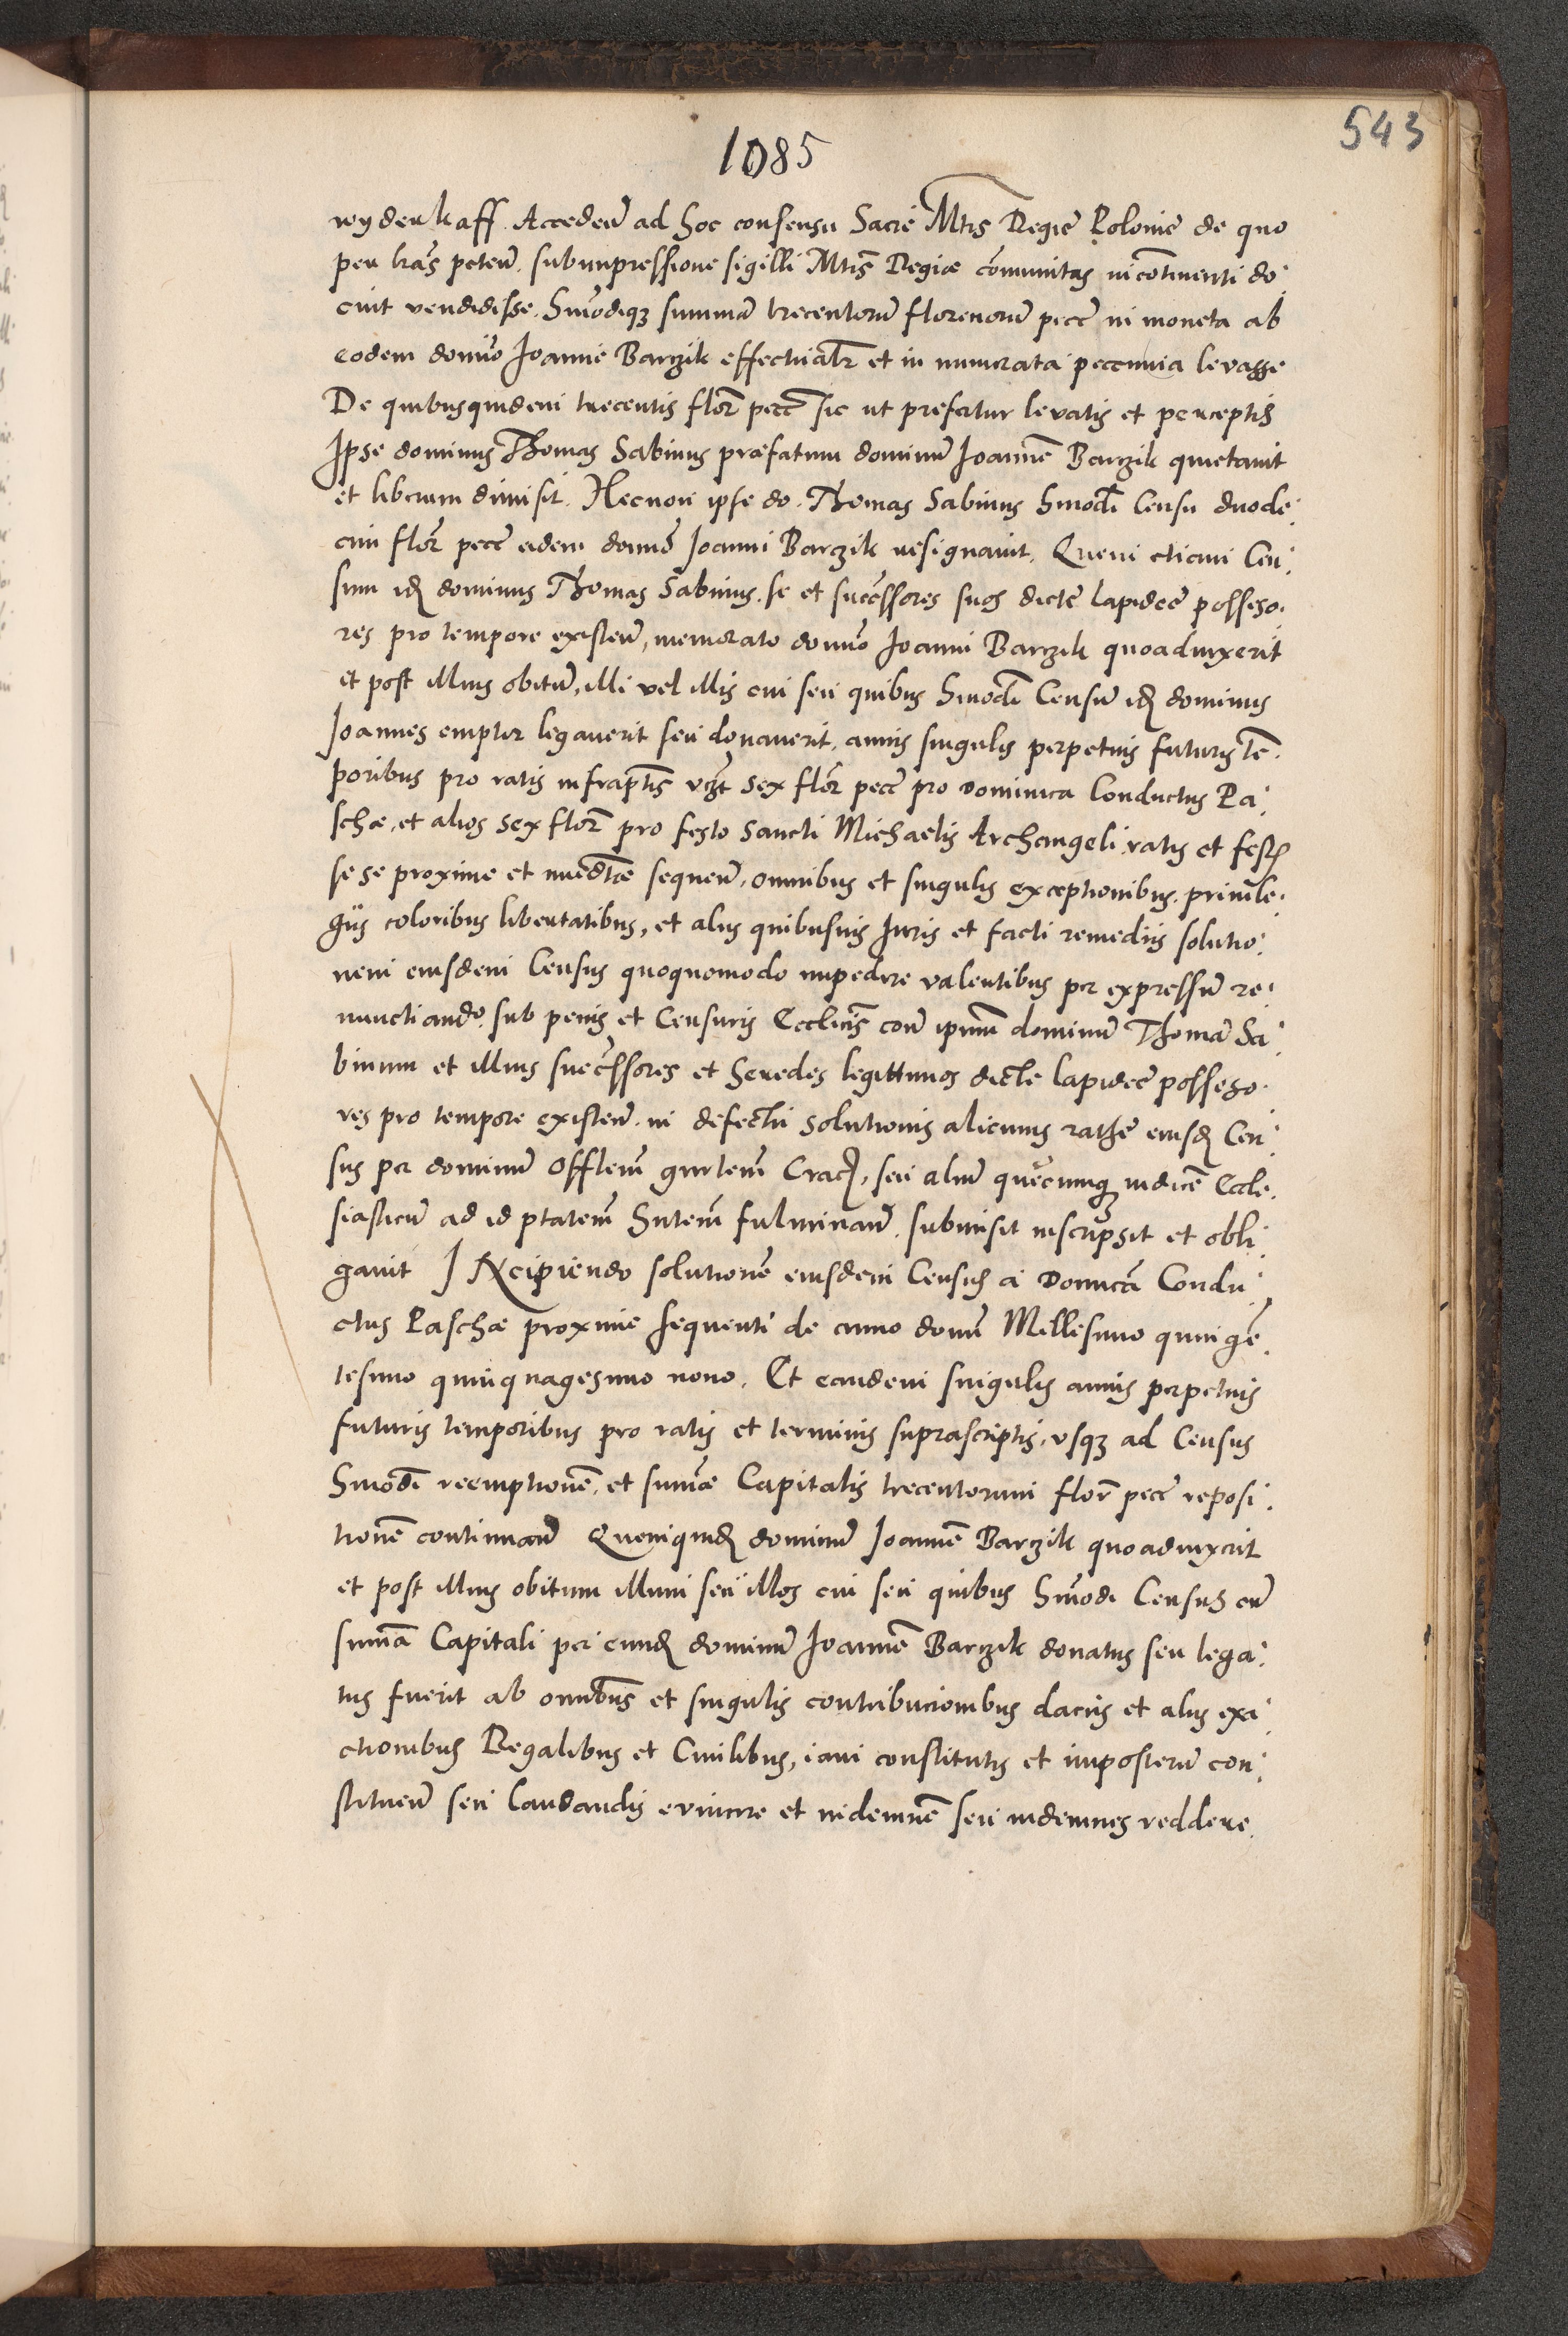 543
1085
wyderkaff. Accedeñ ad hoc consensu Sacrę Mtis Regię Polonię de quo
per lr̃as pateñ. sub impressione sigilli Mtis̃ Regiæ com̃unitas in continenti do-
cuit vendidisse. Hm̃odiq₃ summã trecentorũ florenorũ pecẽ in moneta ab
eodem domĩo Joanne Barczik effectualr̃ et in numerata pecunia levasse
De quibusquidem trecentis flor̃ pecẽ sic ut prefertur levatis et perceptis
Ipse dominus Thomas Sabinus præfatum dominũ Joannẽ Barczik quietavit
et liberum dimisit. Necnon ipse do. Thomas Sabinus Hmõdi Censu duode-
cim flor̃ pecẽ eidem domĩo Joanni Barczik resignavit. Quem etiam Cen-
sum idẽ dominus Thomas Sabinus. se et succẽssores suos dictę lapideę possesso-
res pro tempore existeñ, memorato domĩo Joanni Barczik quoad vixerit
et post illius obitũ, illi vel illis cui seu quibus Hmõdi Censũ idẽ dominus
Joannes emptor legaverit seu donaverit. annis singulis perpetuis futuris tẽ-
poribus pro ratis infrap̃tis vz̃t sex flor̃ pecẽ pro Dominica Conductus Pa-
schæ, et alios sex flor̃ pro festo Sancti Michaelis Archangeli ratis et festis
se se proxime et im̃ediãte sequeñ. omnibus et singulis exceptionibus. privile-
gijs coloribus libertatibus, et alijs quibusuis Juris et facti remedijs solutio-
nem eiusdem Census quoquomodo impedire valentibus per expressũ re-
nunctiando. sub penis et Censuris Ecclicis̃ con̄ ipsum̃ dominũ Thomã Sa-
binum et illius succẽssores et heredes legittimos dictę lapideę possesso-
res pro tempore existeñ. in defectu solutionis alicuius rathę eiusdẽ Cen-
sus per dominũ Offlem̃ gnrlem̃ Crac̃, seu aliũ quẽcumq₃ iudicẽ Eccle-
siasticũ ad id ptatem̃ hñtem̃ fulminañ. submisit inscripsit et obli-
gavit Incipiendo solutionẽ eiusdem Census a Domicã Condu-
ctus Paschæ proxime sequenti de anno domĩ Millesimo quingẽ-
tesimo quinquagesimo nono. Et eandem singulis annis perpetuis
futuris temporibus pro ratis et terminis suprascriptis, usq₃ ad Census
Hmõdi reemptionẽ, et sum̃æ Capitalis trecentorum flor̃ pecẽ reposi-
tionẽ continuañ Quemquidẽ dominũ Joannẽ Barczik quoad vixerit
et post illius obitum illum seu illos cui seu quibus Hmõdi Census cũ
sum̃a Capitali per eundẽ dominũ Joannẽ Barczik donatus seu lega-
tus fuerit ab omĩbus et singulis contribucionibus dacijs et alijs exa-
ctionibus Regalibus et Civilibus, iam constitutis et imposterũ con-
stitueñ seu laudandis evincere et indemnẽ seu indemnes reddere.